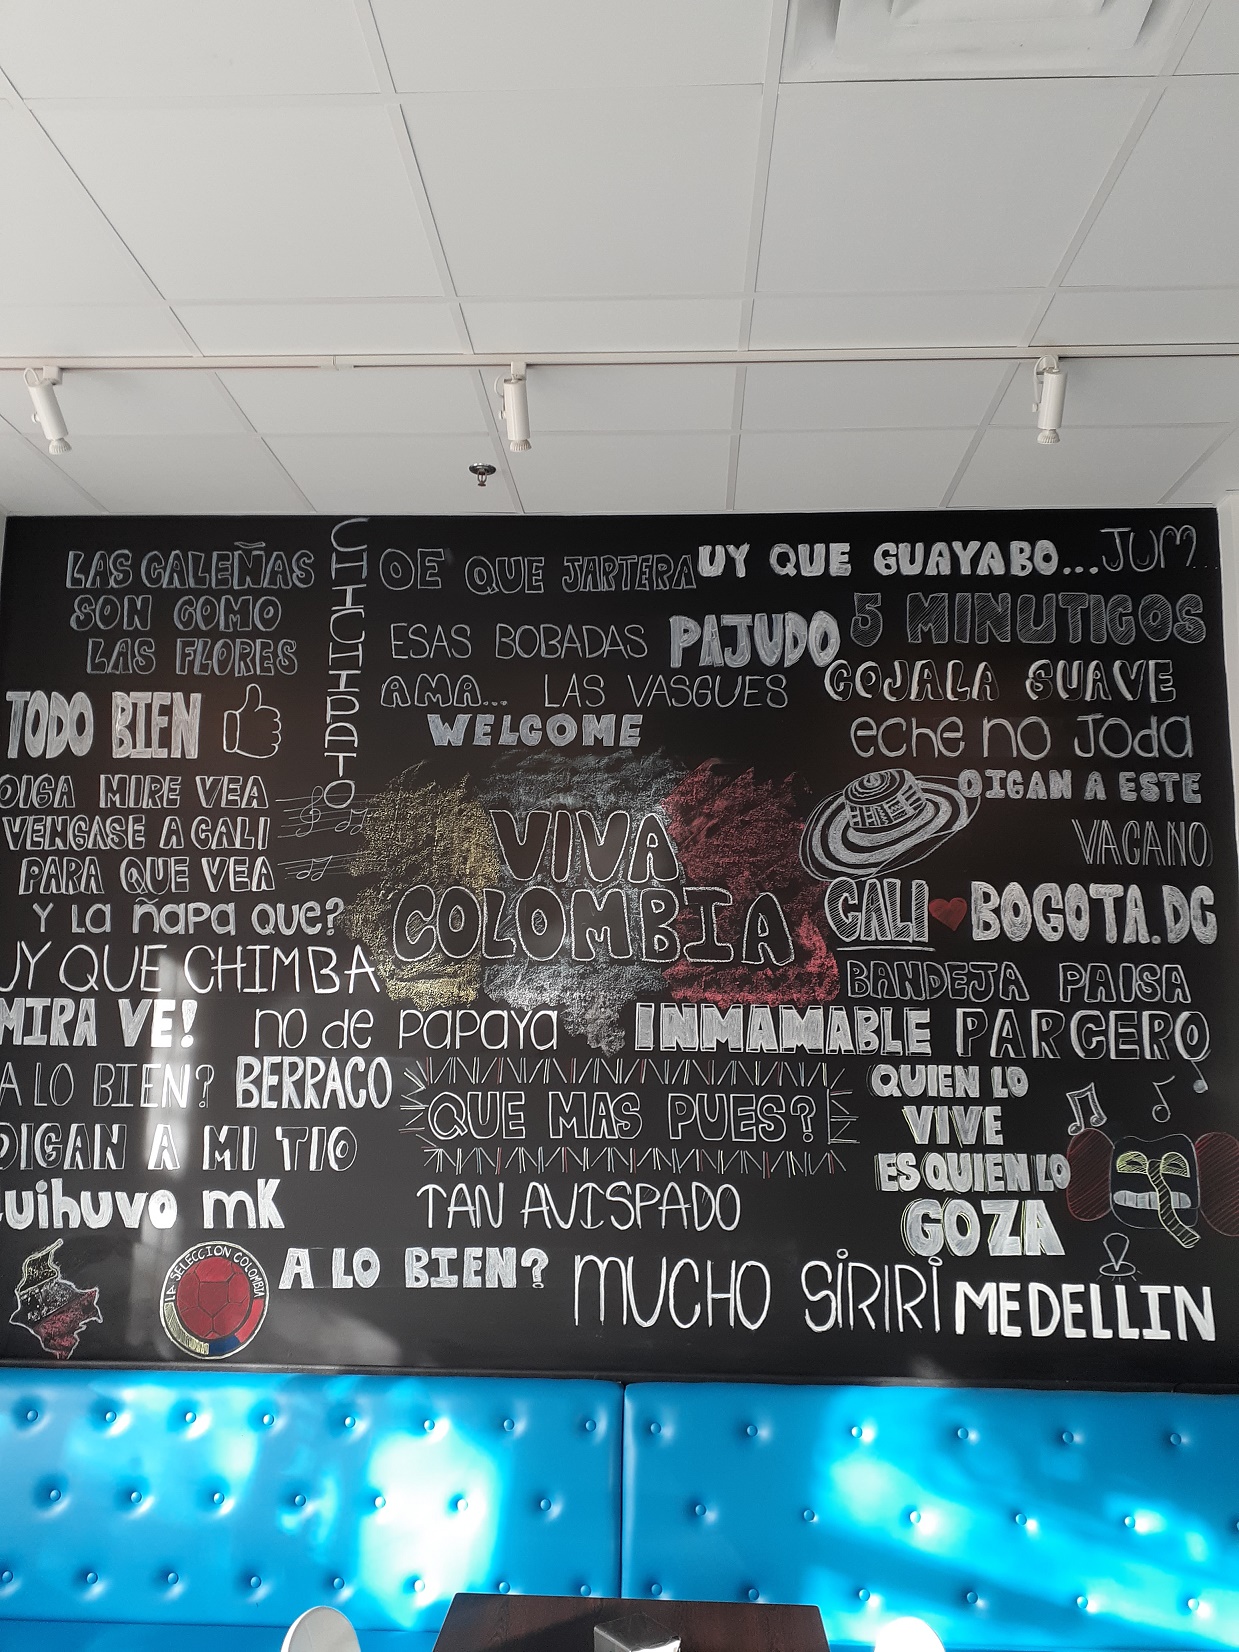 LAS CALEÑAS
SON COMO
LAS FLORES
CHICHIPATO
OE QUE JARTERA
UY QUE GUAYABO...
JUM..
5 MINUTICOS
ESAS BOBADAS
PAJUDO
AMA... LAS VASGUES
COJALA SUAVE
TODO BIEN
WELCOME
eche no Joda
OIGA MIRE VEA
VENGASE A CALI
PARA QUE VEA
OIGAN A ESTE
VACANO
VIVA
COLOMBIA
Y La ñapa que?
CALI BOGOTA.DC
UY QUE CHIMBA
BANDEJA PAISA
MIRA VE!
no de papaya
INMAMABLE
PARCERO
A LO BIEN?
BERRACO
QUE MAS PUES?
QUIEN LO
VIVE
ES QUIEN LO
GOZA
OIGAN A MI TIO
quihuvo mK
TAN AVISPADO
LA SELECCION COLOMBIA
A LO BIEN?
MUCHO SIRIRI
MEDELLIN